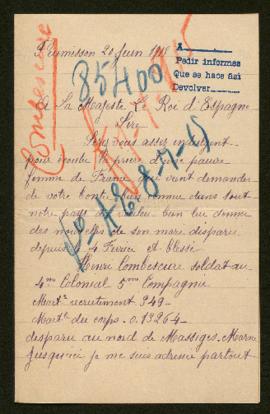 Puimisson 20 Juin 1915
A
Pedir informes
Que se hace así
Devolver
Combescure
85400
A Sa Majesté Le Roi d'Espagne
Sire
Serez vous assez indulgent
pour d'une pauvre
femme de France vous demander
de votre bonté connue dans tout
notre pays de bien lui donner
des nouvelles de son mari disparu
depuis 4 Février et blessé
Henri Combescure soldat au
4me Colonial 5me Compagnie
Matle recrutement 949
Matle du corps 0.13264
disparu au nord de Massiges Marne
Jusqu'ici je me suis adressé partout